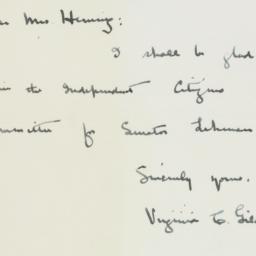 Mrs. Hening:
I shall be glad
the Independent Citizens
for Senator Lehman
Sincerely yours,
Virginia